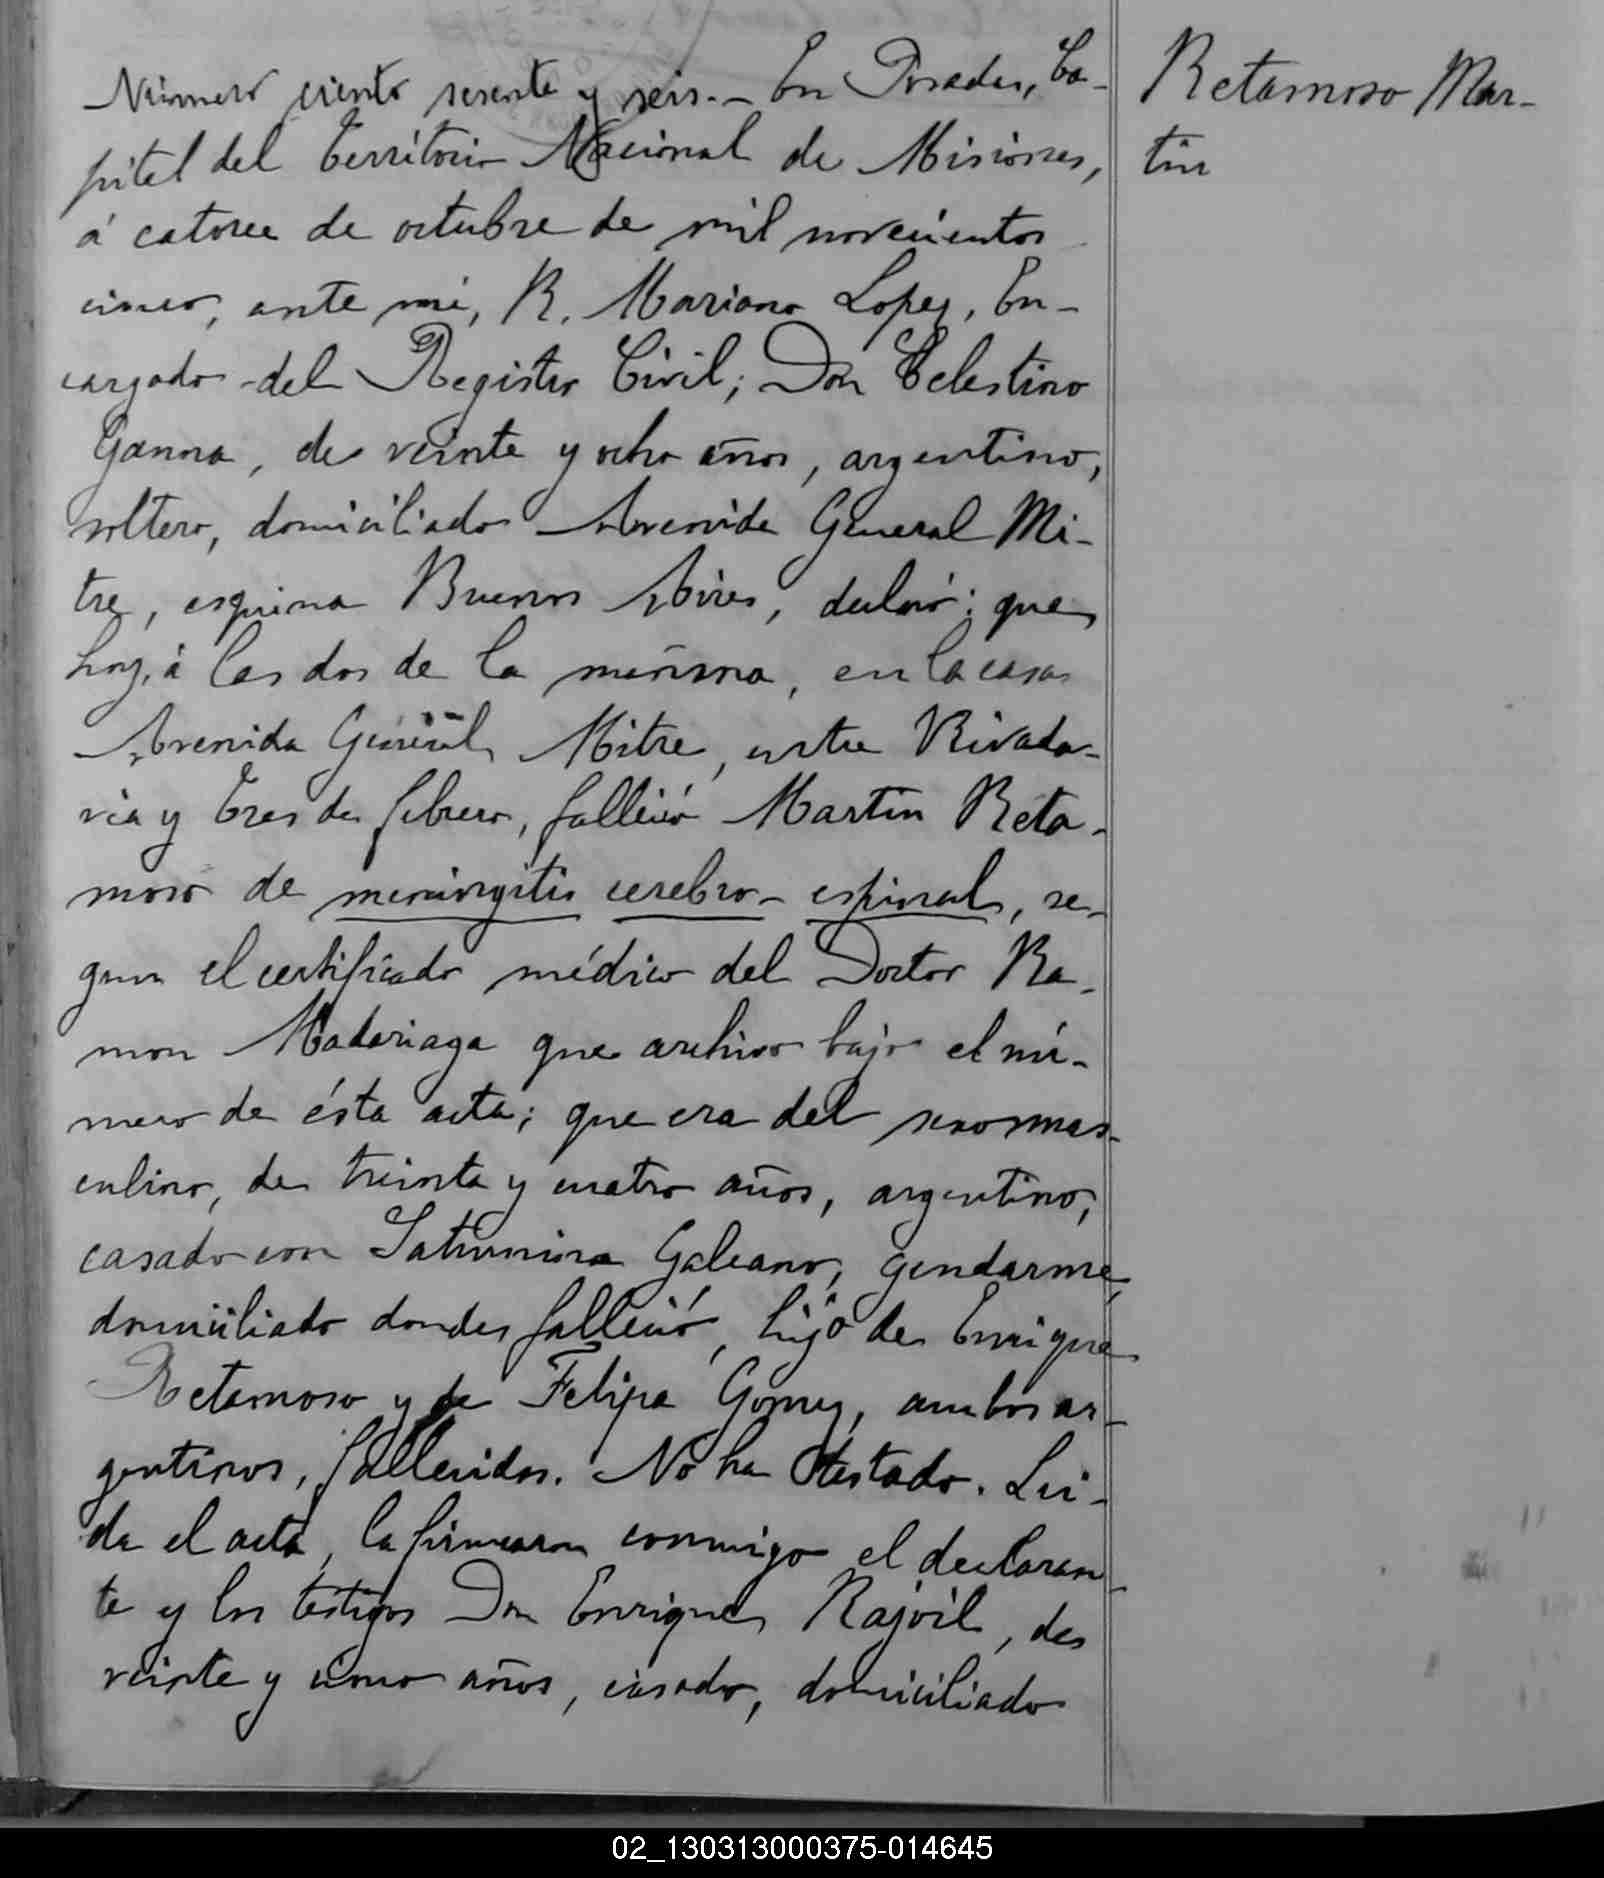 Número ciento sesenta y seis.- En Posadas, Ca-
pital del Territorio Nacional de Misiones,
á catorce de octubre de mil novecientos
cinco, ante mí, R. Mariano Lopez, En-
cargado del Registro Civil; Don Celestino
Ganna, de veinte y ocho años, argentino,
soltero, domiciliado Avenida General Mi-
tre, esquina Buenos Aires, declaró: que
hoy, á las dos de la mañana, en la casa
Avenida General Mitre, entre Rivada-
via y Tres de febrero, falleció Martin Reta-
moso de meningitis cerebro-espinal, se-
gun el certificado médico del Doctor Ra-
mon Madariaga que archivo bajo el nú-
mero de ésta acta; que era del sexo mas-
culino, de treinta y cuatro años, argentino,
casado con Saturnina Galeano, gendarme,
domiciliado donde falleció, hijo de Enrique
Retamoso y de Felipa Gomez, ambos ar-
gentinos, fallecidos. No ha testado. Lei-
da el acta, la firmaron conmigo el declaran-
te y los testigos Don Enrique Rajoil, de
veinte y cinco años, casado, domiciliado
Retamoso Mar-
tin
02_130313000375-014645